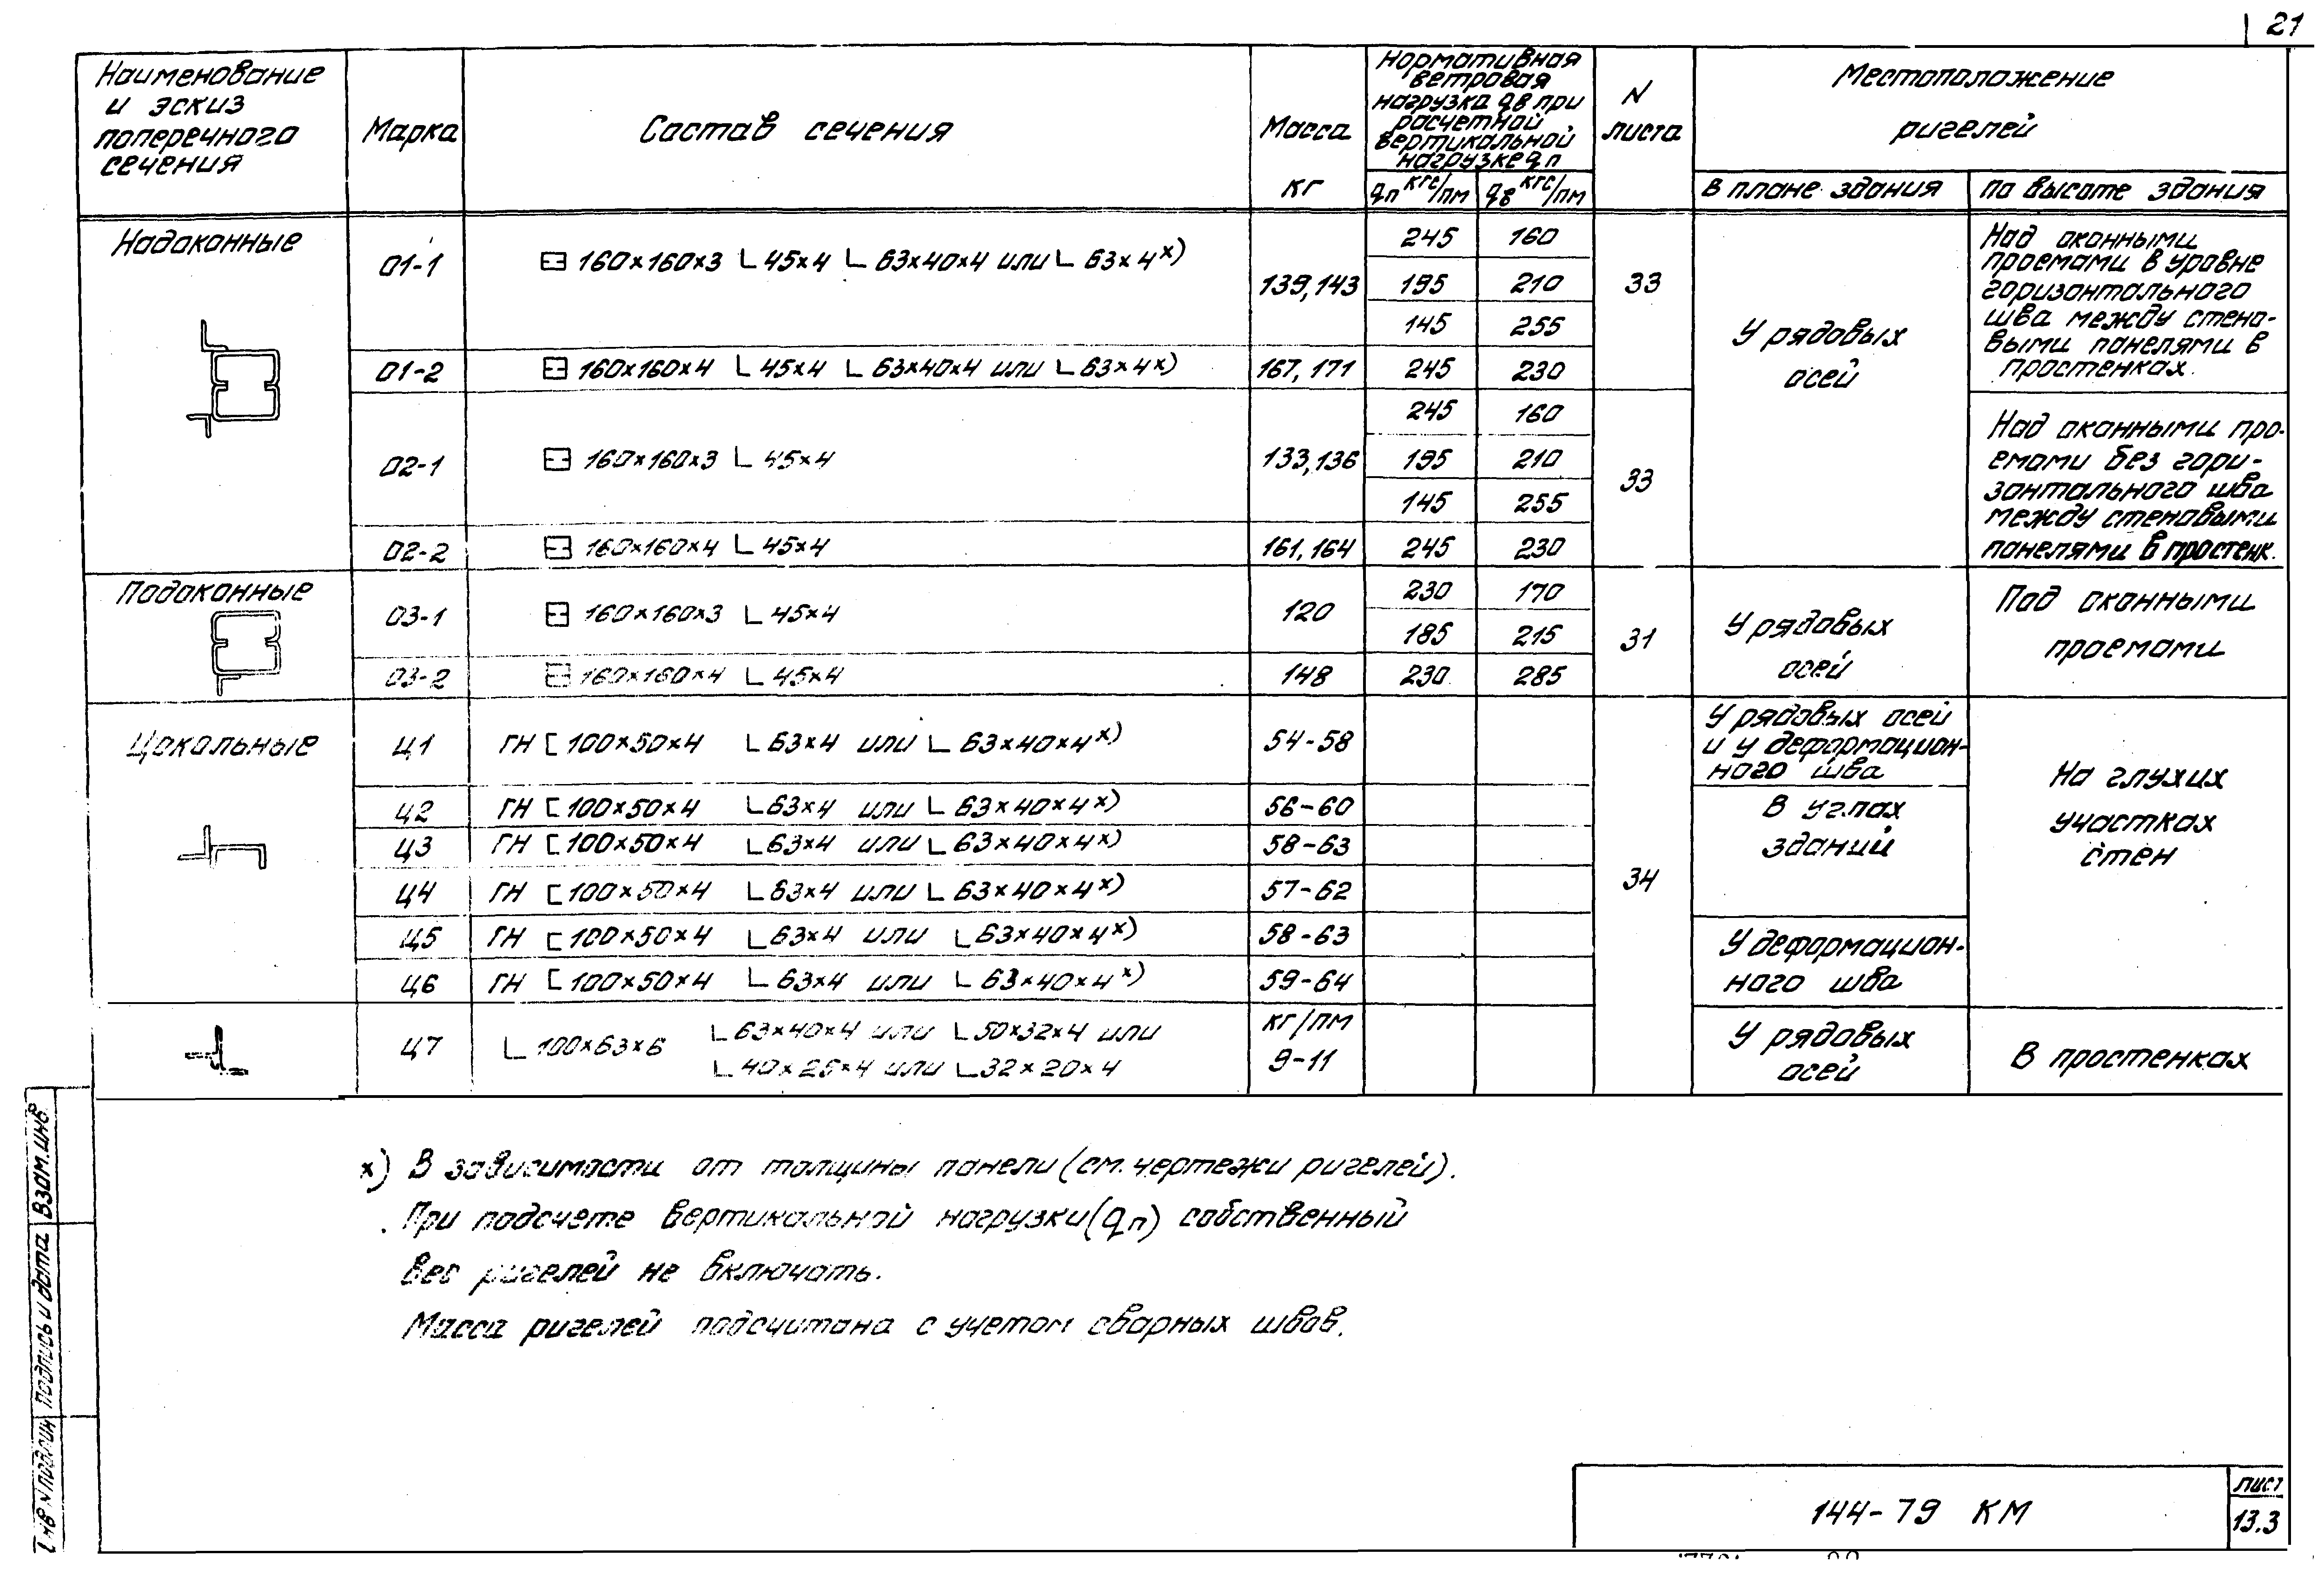 21
Наименование
и эскиз
поперечного
сечения
Марка
Состав сечения
Масса
кг
Нормативная
ветровая
нагрузка qв при
расчетной
вертикальной
нагрузке qп
qп кгс/пм
qв кгс/пм
N
листа
Местоположение
ригелей
в плане здания
по высоте здания
Надоконные
О1-1
160×160×3 L 45×4 L 63×40×4 или L 63×4 х)
139,143
245 160
195 210
145 255
33
У рядовых
осей
Над оконными
проемами в уровне
горизонтального
шва между стено-
выми панелями в
простенках.
О1-2
160×160×4 L 45×4 L 63×40×4 или L 63×4 х)
167, 171
245 230
О2-1
160×160×3 L 45×4
133,136
245 160
195 210
145 255
33
Над оконными про-
емами без гори-
зонтального шва
между стеновыми
панелями в простенк.
О2-2
160×160×4 L 45×4
161, 164
245 230
Подоконные
О3-1
160×160×3 L 45×4
120
230 170
185 215
31
У рядовых
осей
Под оконными
проемами
О3-2
160×160×4 L 45×4
148
230 285
Цокольные
Ц1
ГН [ 100×50×4 L 63×4 или L 63×40×4 х)
54-58
У рядовых осей
и у деформацион-
ного шва
На глухих
участках
стен
Ц2
ГН [ 100×50×4 L 63×4 или L 63×40×4 х)
56-60
В углах
зданий
Ц3
ГН [ 100×50×4 L 63×4 или L 63×40×4 х)
58-63
Ц4
ГН [ 100×50×4 L 63×4 или L 63×40×4 х)
57-62
34
Ц5
ГН [ 100×50×4 L 63×4 или L 63×40×4 х)
58-63
У деформацион-
ного шва
Ц6
ГН [ 100×50×4 L 63×4 или L 63×40×4 х)
59-64
Ц7
L 100×63×6
L 63×40×4 или L 50×32×4 или
L 40×25×4 или L 32×20×4
кг/пм
9-11
У рядовых
осей
В простенках
х) В зависимости от толщины панели (см. чертежи ригелей).
При подсчете вертикальной нагрузки (qп) собственный
вес ригелей не включать.
Масса ригелей подсчитана с учетом сварных швов.
Взам. инв.
Подпись и дата
Инв N подлин
144-79 КМ
лист
13.3